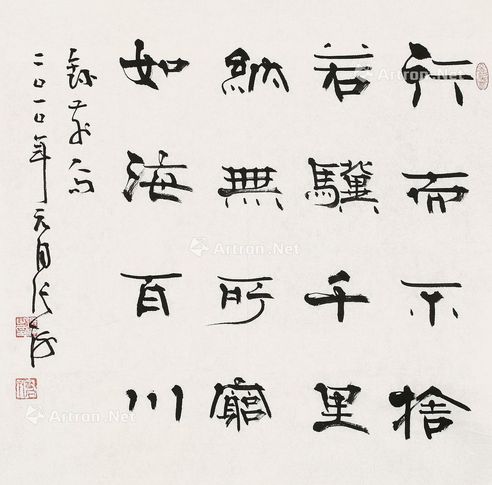 行而不捨
若驥千里
納無所窮
如海百川
二〇一〇年元月张海
Artron.Net
Artron.Net
Artron.Net
Artron.Net